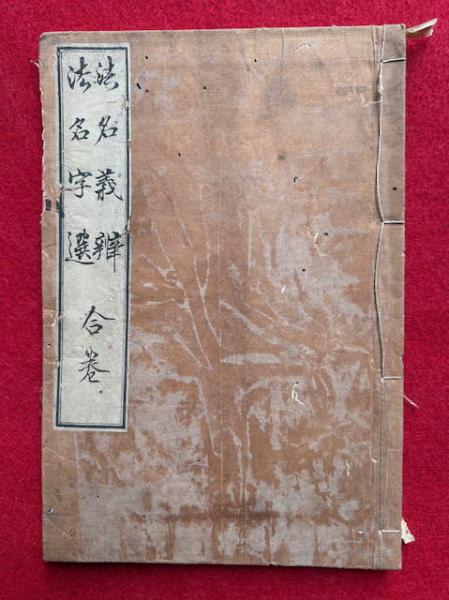 法名義辯
法名字選
合巻